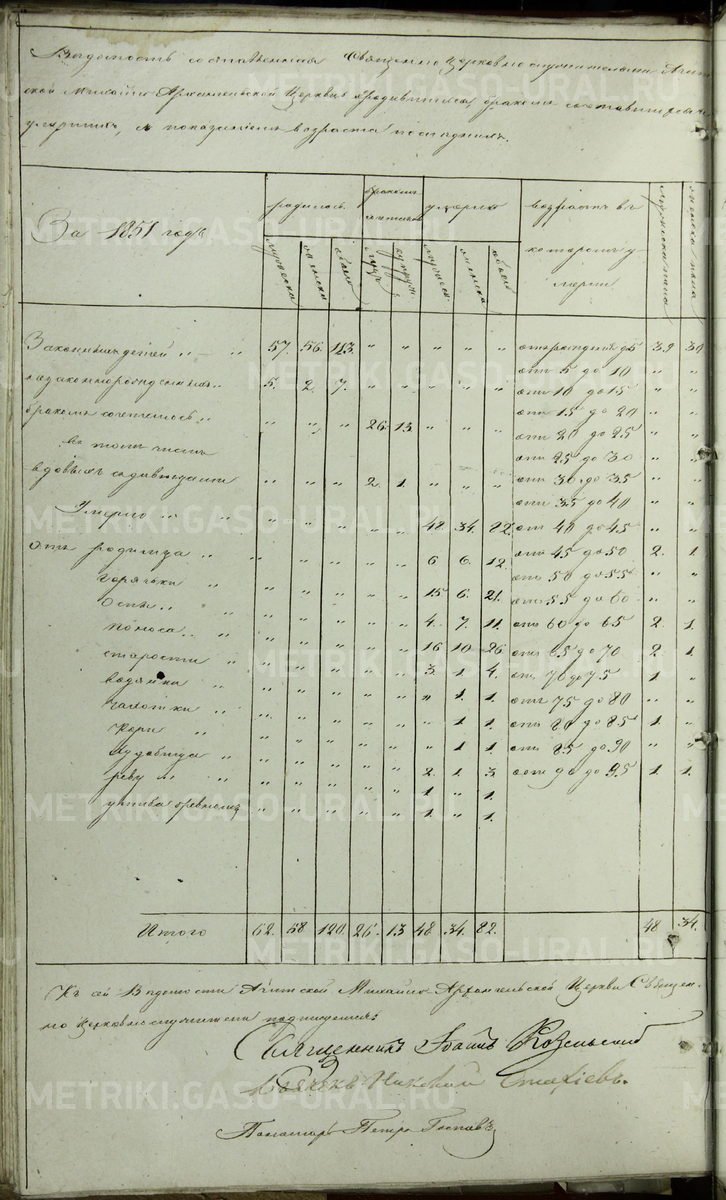 Ведомость составленная Священно церковно служителями Ачит-
ской Михайло Архангельской Церкви о родившихся браком сочетавшихся и
умерших, с показанием возраста последних.
За 1851 годъ
родилось
браком
умерло
возрастъ въ
котором у-
мерли
мужеска
женска
обоего
мужеска
женска
обоего
мужеска пола
женска пола
Законныхъ детей „ „ 57. 56. 113. „ „ „ „ „ от рождения до 5 39 30
незаконнорожденныхъ „ 5. 2. 7. „ „ „ „ „ отъ 5 до 10 „ „
отъ 10 до 15 „ „
браком сочеталось „ „ „ „ 26. 13 „ „ „ отъ 15 до 20 „ „
отъ 20 до 25 „ „
въ томъ числе
отъ 25 до 30 „ „
вдовыхъ с девицами „ „ „ 2. 1. „ „ „ отъ 30 до 35 „ „
отъ 35 до 40 „ „
Умерло „ „ „ „ „ „ „ 48. 34. 82. отъ 40 до 45 „ „
Отъ родимца „ „ „ „ „ „ 6 6. 12. отъ 45 до 50 2. 1.
отъ 50 до 55 „ „
горячки „ „ „ „ „ „ 15 6. 21. отъ 55 до 60 „ „
Оспы „ „ „ „ „ „ „ 4. 7. 11. отъ 60 до 65 2. 1.
поноса „ „ „ „ „ „ „ 16 10. 26. отъ 65 до 70 2. 1
старости „ „ „ „ „ „ 3. 1 4. отъ 70 до 75 1 „
водянки „ „ „ „ „ „ „ 1. 1. отъ 75 до 80 „ „
чахотки „ „ „ „ „ „ „ 1 1. отъ 80 до 85 1. „
Кори „ „ „ „ „ „ „ 1 1. отъ 85 до 90 „ „
худобища „ „ „ „ „ „ 2. 1. 3 отъ 90 до 95 1. 1.
„ „ „ „ „ „ 1 „ 1.
„ „ „ „ „ 1. „ 1.
Итого 62. 58 120. 26. 13 48. 34. 82. 48 34.
Къ сей Ведомости Ачитской Михайло Архангельской Церкви Священ-
но церковнослужители подписуемся:
Священникъ Иоаннъ Козельский
Дьячекъ Николай
Пономарь Петръ Поповъ
METRIKI.GASO-URAL.RU